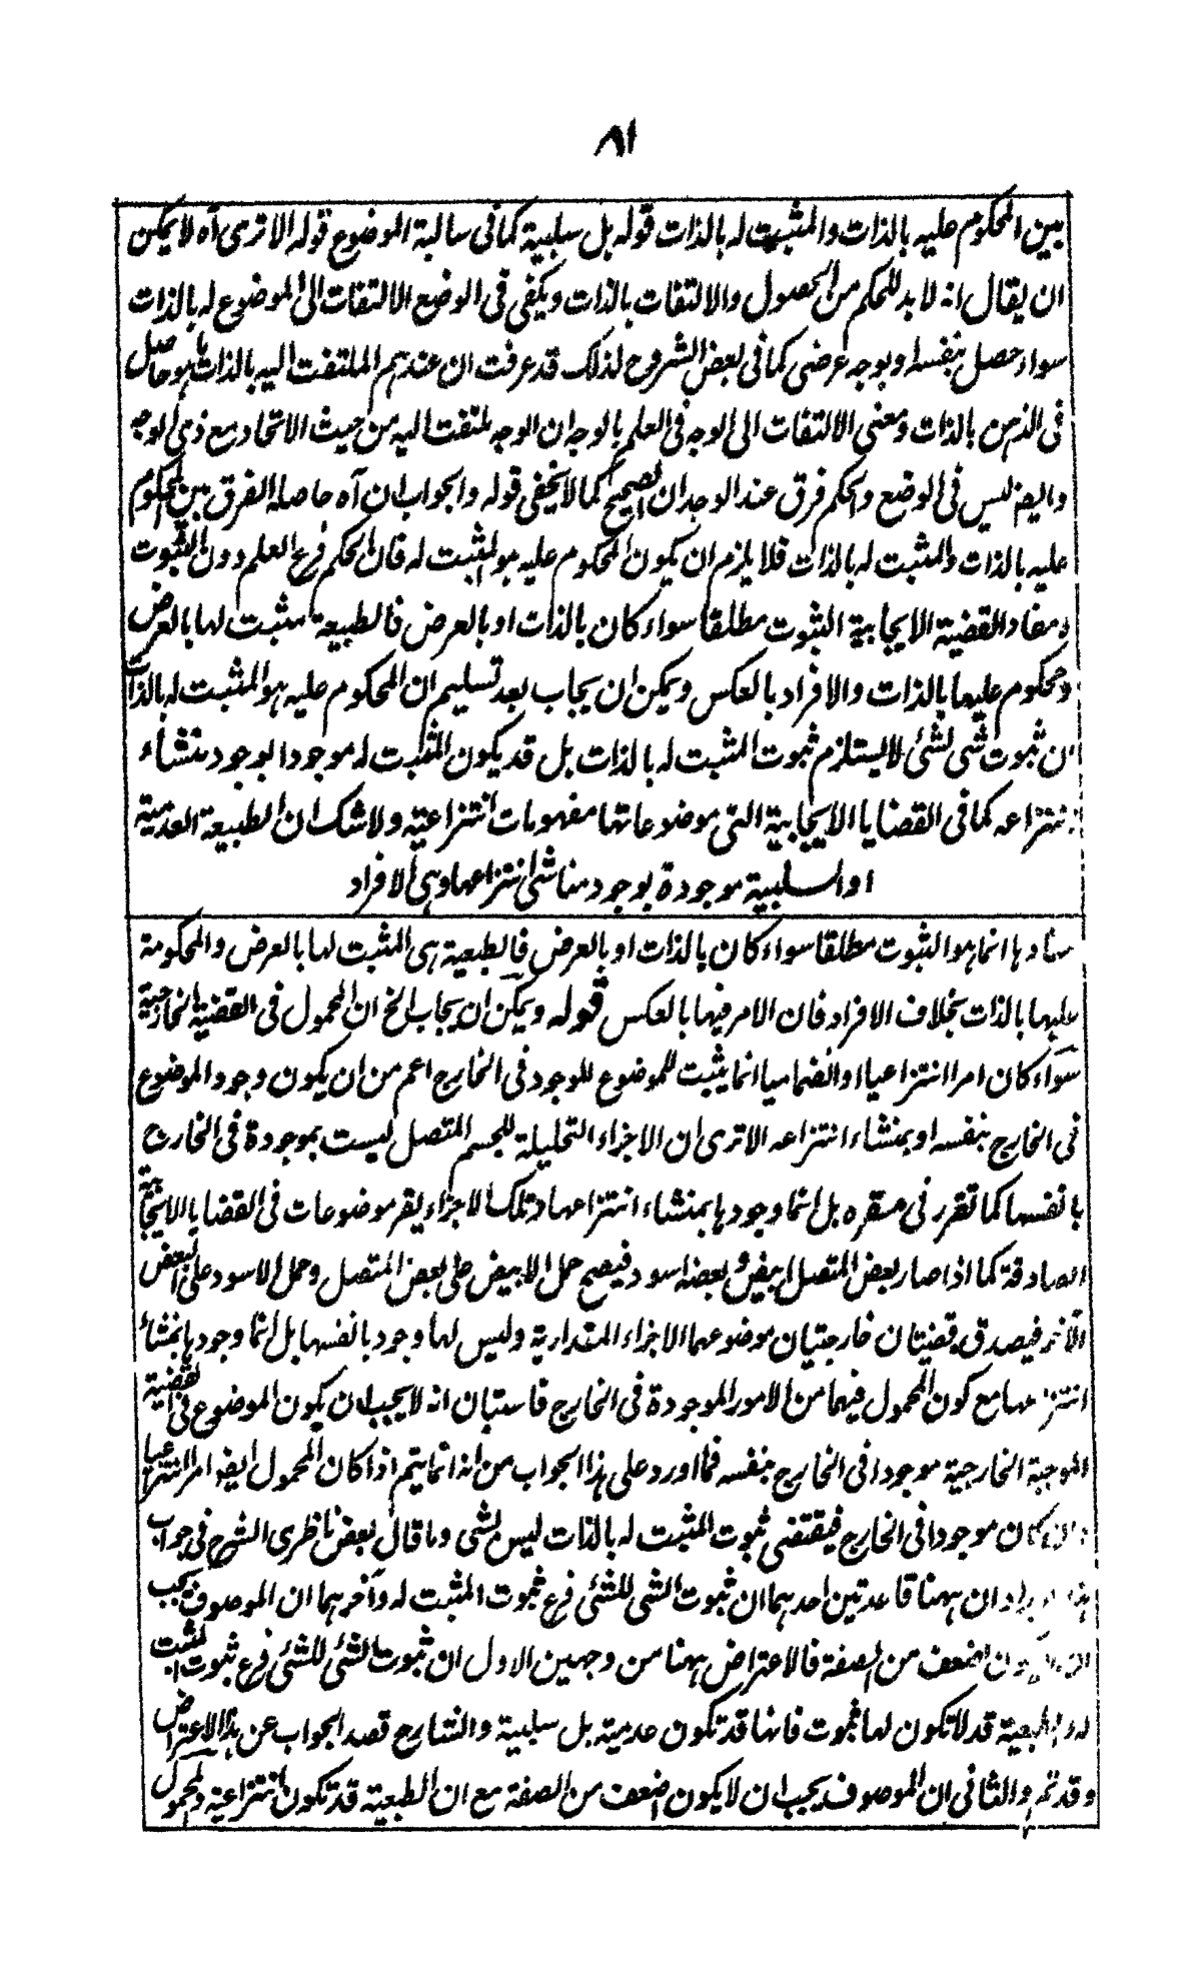 ٨١
بين المحكوم عليه بالذات والمثبت له بالذات قوله بل سلبية كما فى سالبة الموضوع قوله الا ترى آه لا يمكن
ان يقال انه لا بد للحكم من الحصول والالتفات بالذات ويكفى فى الوضع الالتفات الى الموضوع له بالذات
سواء حصل بنفسه او بوجه عرضى كما فى بعض الشروح لذلك قد عرفت ان عندهم الملتفت اليه بالذات ما هو حاصل
فى الذهن بالذات ومعنى الالتفات الى الوجه فى العلم بالوجه ان الوجه ملتفت اليه من حيث الاتحاد مع ذى الوجه
وايضا ليس فى الوضع والحكم فرق عند الوجدان الصحيح كما لا يخفى قوله والجواب ان آه حاصله الفرق بين المحكوم
عليه بالذات والمثبت له بالذات فلا يلزم ان يكون المحكوم عليه هو المثبت له فان الحكم فرع العلم دون الثبوت
ومفاد القضية الايجابية الثبوت مطلقا سواء كان بالذات او بالعرض فالطبيعة مثبت لها بالعرض
ومحكوم عليها بالذات والافراد بالعكس ويمكن ان يجاب بعد تسليم ان المحكوم عليه هو المثبت له بالذات
ان ثبوت شى لشئ لا يستلزم ثبوت المثبت له بالذات بل قد يكون المثبت له موجودا بوجود منشاء
انتزاعه كما فى القضايا الايجابية التى موضوعاتها مفهومات انتزاعية ولا شك ان الطبيعة العدمية
او السلبية موجودة بوجود مناشى انتزاعها وهى الافراد
مفادها انما هو الثبوت مطلقا سواء كان بالذات او بالعرض فالطبعية هى المثبت لها بالعرض والمحكومة
عليها بالذات بخلاف الافراد فان الامر فيها بالعكس قوله ويمكن ان يجاب الخ ان المحمول فى القضية الخارجية
سواء كان امرا انتزاعيا او انضماميا انما يثبت للموضوع للوجود فى الخارج اعم من ان يكون وجود الموضوع
فى الخارج بنفسه او بمنشاء انتزاعه الا ترى ان الاجزاء التحليلة للجسم المتصل ليست بموجودة فى الخارج
بانفسها كما تقرر فى مقره بل انما وجودها بمنشاء انتزاعها وتلك الاجزاء يقر موضوعات فى القضايا الايجابية
الصادقة كما اذا صار بعض المتصل ابيض وبعضه اسود فيصح حمل الابيض على بعض المتصل وحمل الاسود على البعض
الآخر فيصدق قضيتان خارجتيان موضوعهما الاجزاء المقدارية وليس لها وجود بانفسها بل انما وجودها بمنشاء
انتزاعها مع كون المحمول فيهما من الامور الموجودة فى الخارج فاستبان انه لا يجب ان يكون الموضوع فى القضية
الموجبة الخارجية موجودا فى الخارج بنفسه فما اورد على هذا الجواب من انه انما يتم اذا كان المحمول ايضا امرا انتزاعيا
وان كان موجودا فى الخارج فيقتضى ثبوت المثبت له بالذات ليس بشى وما قال بعض ناظرى الشرح فى جواب
ان ههنا قاعدتين احدهما ان ثبوت الشى للشئى فرع ثبوت المثبت له وآخرهما ان الموصوف يجب
ان لا يكون اضعف من الصفة فالاعتراض ههنا من وجهين الاول ان ثبوت الشئ للشئ فرع ثبوت المثبت
له والطبعية قد لا تكون لها ثبوت فانها قد تكون عدمية بل سلبية والشارح قصد الجواب عن هذا الاعتراض
وقد تم والثانى ان الموصوف يجب ان لا يكون اضعف من الصفة مع ان الطبعية قد تكون انتزاعية والمحمول